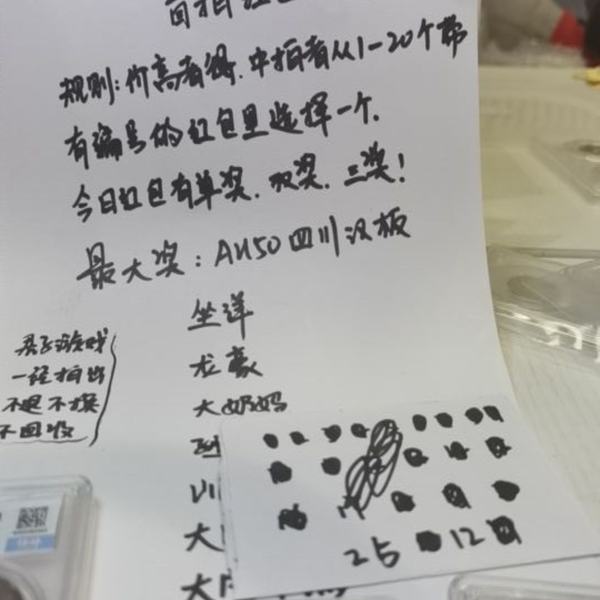 盲拍红包
规则:价高者得.中拍者从1-20个带
有编号的红包里选择一个.
今日红包有单奖.双奖.三奖!
最大奖:AU50四川汉板
坐洋
龙毫
大奶妈
君子游戏
一经拍出
不退不换
不回收
川
大
大
25 12